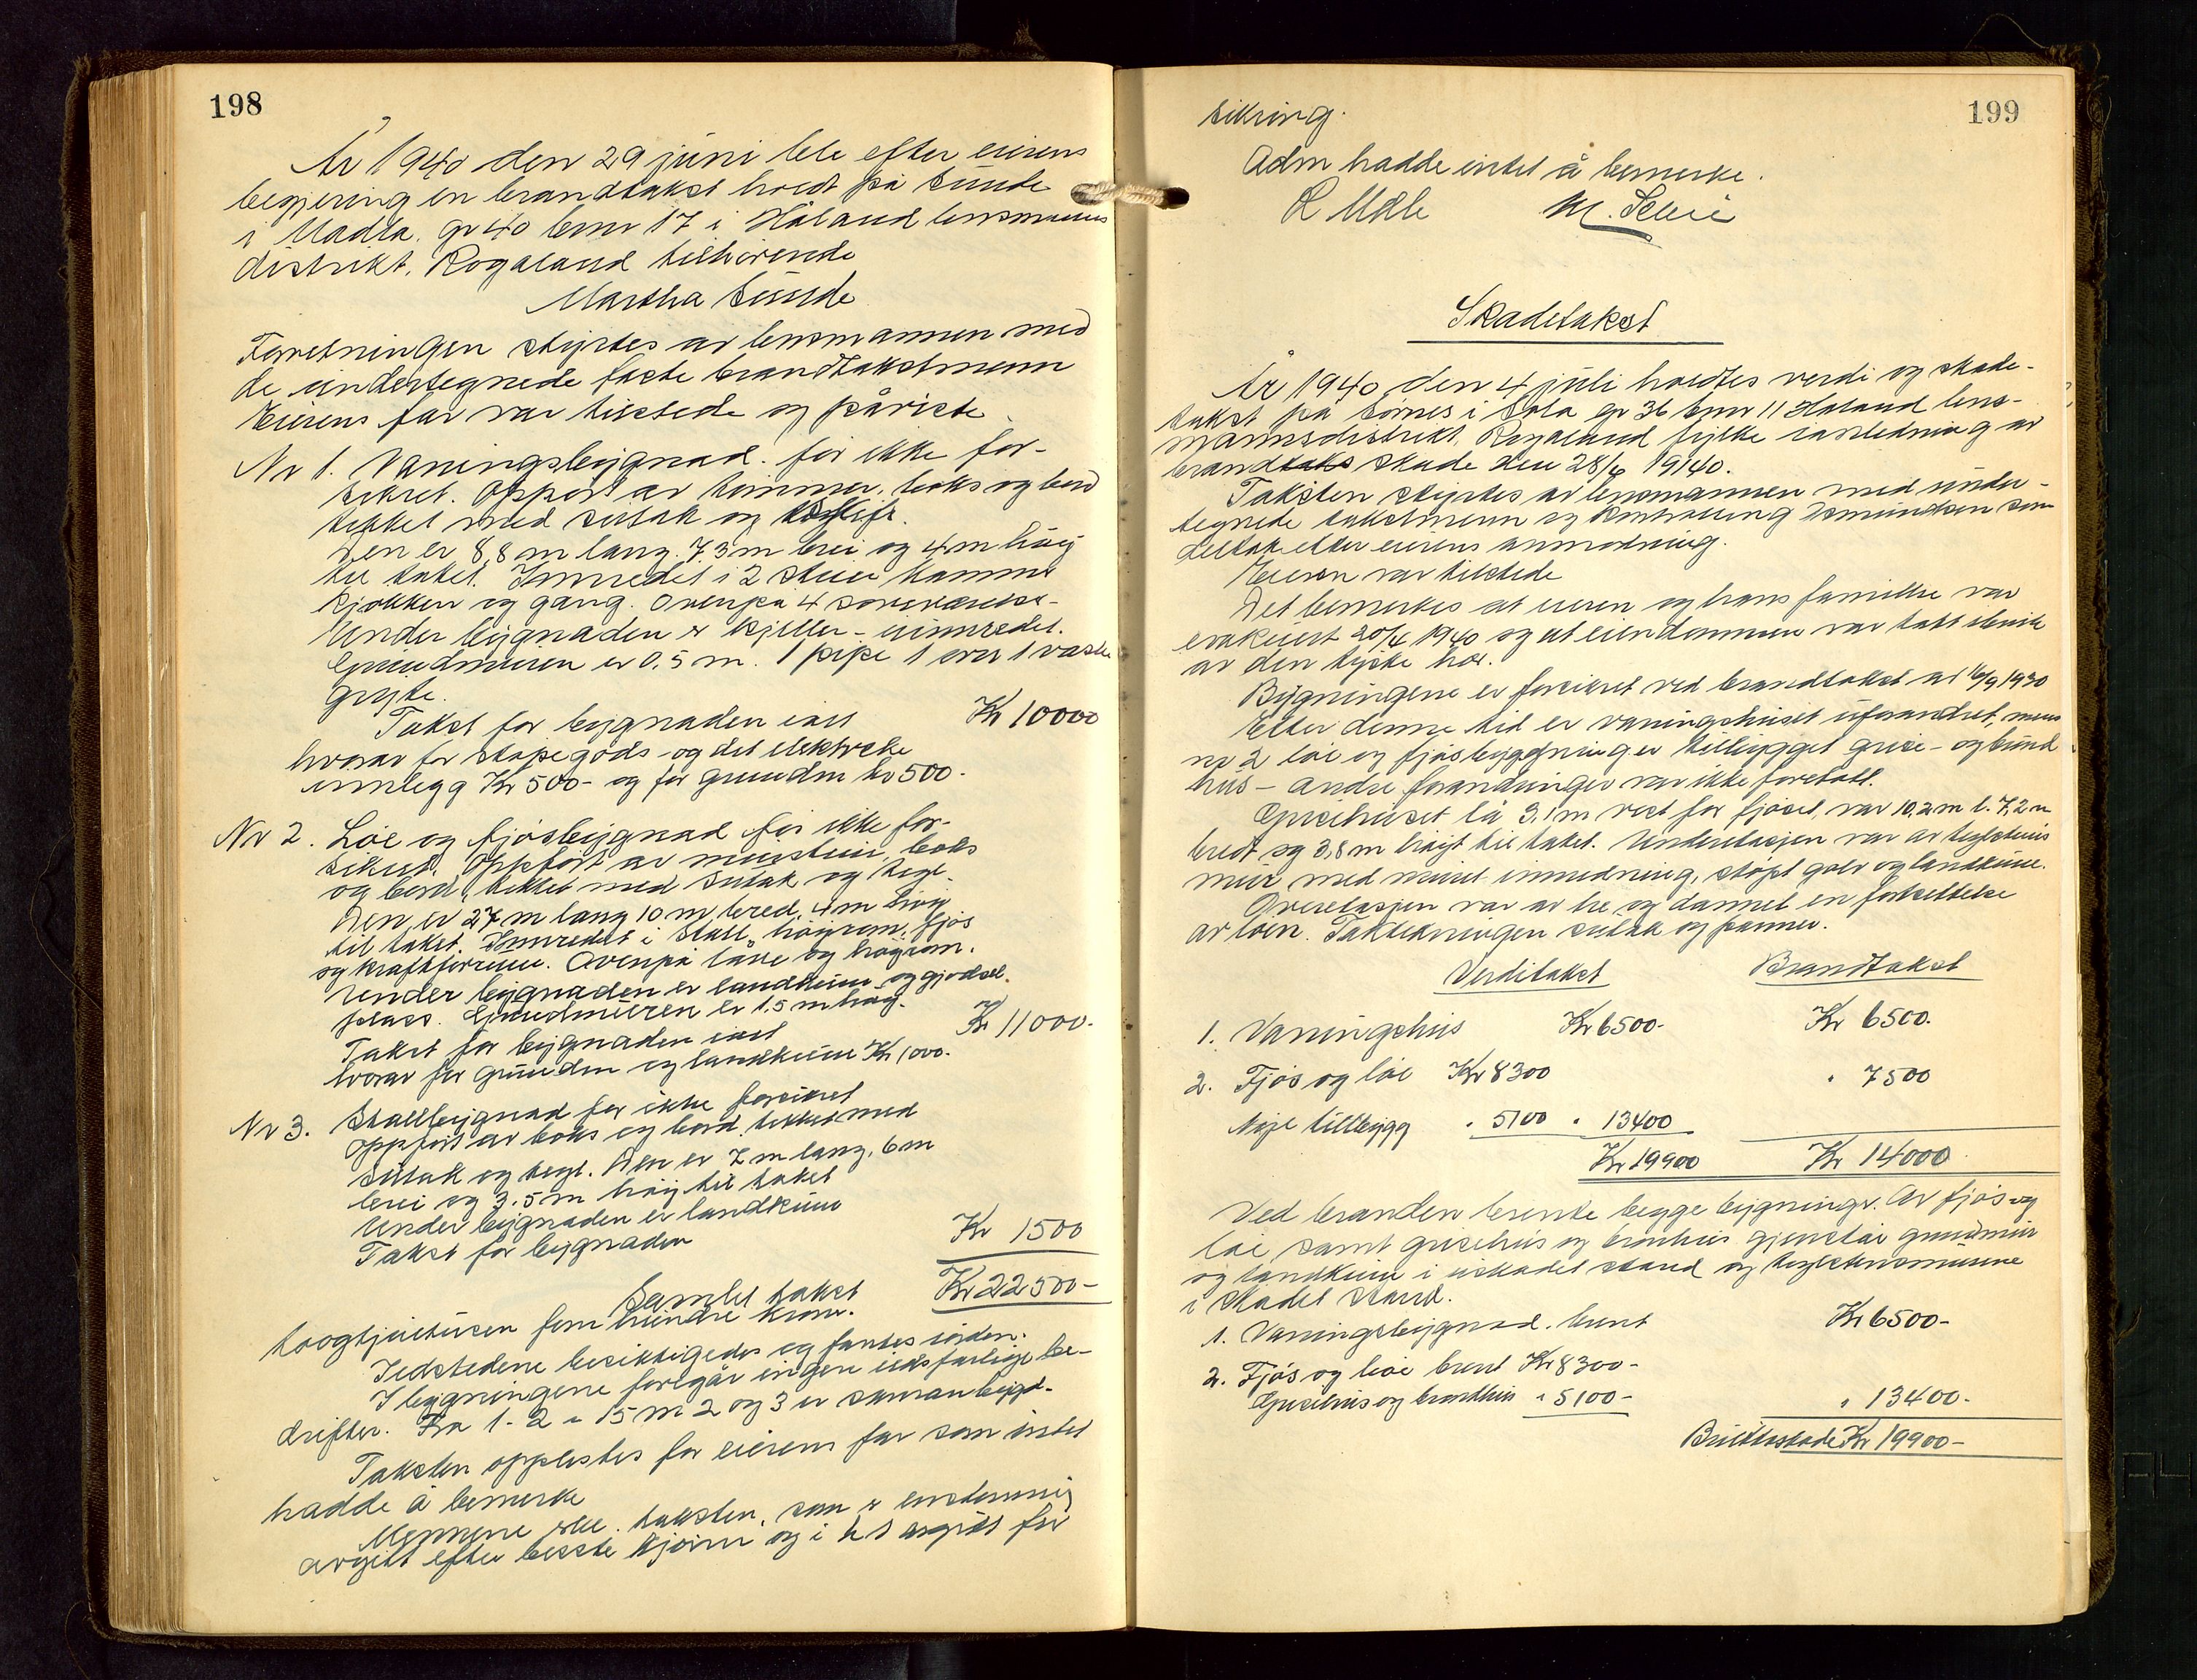 198
År 1940 den 29 juni ble efter eierens
begjering en brandtakst holdt på Sunde
i Madla. gr 40 bnr 17 i Håland lensmanns
distrikt, Rogaland tilhørende
Martha Sunde
Forretningen styrtes av lensmannen med
de undertegnede faste brandtakstmenn
Eierens far var tilstede og påviste
Nr 1. Vaningsbygnad. før ikke for-
sikret. Oppført av tømmer, boks og bord
tekket med sutak og
Den er 8,8 m lang. 7,3 m brei og 4 m høig
til taket. Innredet i 2 stuer kammer
kjøkken og gang. Ovenpå 4 soveværelse-
Under bygnaden er kjeller - uinnredet.
Grundmuren er 0,5 m. 1 pipe 1 ovn 1 vaske
gryte.
Takst for bygnaden ialt Kr 10000
hvorav for støpegods og det elektriske
innlegg Kr 500- og for grundm kr 500-
Nr 2. Løe og fjøsbygnad før ikke for-
sikret. Oppført av murstein, boks
og bord, tekket med sutak og tegl.
Den er 27 m lang 10 m bred, 4 m høig
til taket. Innredet i stall, høyrom, fjøs
og kraftforrum. Ovenpå låve og høyrom.
Under bygnaden er landkum og gjødsel.
plass. Grundmuren er 1,5 m høig.
Takst for bygnaden ialt Kr 11000-
hvorav for grundm og landkum Kr 1000-
Nr 3. Stallbygnad før ikke forsikret
Oppført av boks og bord. tekket med
sutak og tegl. Den er 7 m lang, 6 m
brei og 3,5 m høig til taket
Under bygnaden er landkum
Takst for bygnaden Kr 1500
Samlet takst Kr 22500-
toogtjuetusen fem hundre kroner.
Ildstedene besiktigedes og fantes iorden.
I bygningene foregår ingen ildsfarlige be-
drifter. Fra 1-2 = 15 m 2 og 3 er sammanbygd-
Taksten opplestes for eierens far som intet
hadde å bemerke
Mennene taksten, som er enstemmig
avgitt efter beste skjønn og i h t avgitt for
199
sikring.
Adm hadde intet å bemerke.
M.
Skadetakst
År 1940 den 4 juli holdtes verdi og skade-
takst på Sømes i Sola gr 36 bnr 11 Håland lens-
mannsdistrikt, Rogaland fylke ianledning av
brandtaks skade den 28/6 1940.
Taksten styrtes av lensmannen med under-
tegnede takstmenn og Asmundsen som
deltok etter eierens anmodning.
Eieren var tilstede
Det bemerkes at eieren og hans familie var
evakuert 20/4 1940 og at eiendommen var tatt ibruk
av den tyske hær.
Bygningene er forsikret ved brandtakst av 16/9 1930
Etter denne tid er vaningshuset uforandret, mens
nr 2 løe og fjøsbygning er tilbygget grise- og
hus - andre forandringer var ikke foretatt.
Grisehuset lå 3,1 m vest for fjøset, var 10,2 m l. 7,2 m
bredt og 3,8 m høigt til taket. Underetasjen var av teglsteins
mur med muret innredning, støpt golv og landkum.
Overetasjen var av tre og dannet en fortsettelse
av løen. Taktekningen sutak og panner.
Verditakst Brandtakst
1. Vaningshus Kr 6500- Kr 6500.
2. Fjøs og løe Kr 8300 " 7500
Nye tillbygg " 5100 " 13400
Kr 19900 Kr 14000
Ved branden brente begge bygninger. Av fjøs og
løe samt grisehus og brønhus gjenstår grundmur
og landkum i uskadet stand og teglstensmurene
i skadet stand.
1. Vaningsbygnad. brent Kr 6500-
2. Fjøs og løe brent Kr 8300-
Grisehus og brønhus " 5100- " 13400-
Bruttoskade Kr 19900-